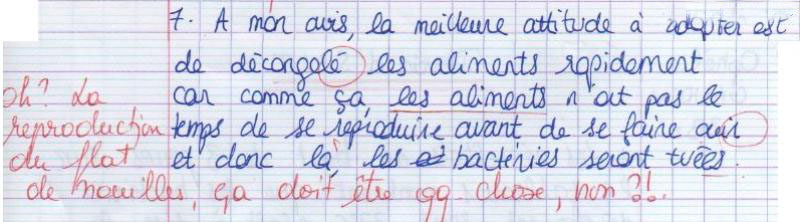 7. A mon avis, la meilleure attitude à adopter est
de décongelé les aliments rapidement
car comme ça, les aliments n'ont pas le
temps de se reproduire avant de se faire cuir
et donc là, les bactéries seront tuées.
Oh? La
reproduction
du plat
de nouilles, ça doit être qq. chose, non ?!.